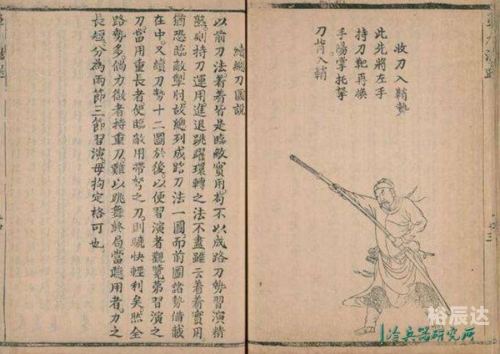 收刀入鞘勢
此先將左手
持刀靶再換
手陽掌托拏
刀背入鞘
續總刀圖說
以前刀法著著皆是臨敵實用苟不以成路刀勢習演精
熟則持刀運用進退跳躍環轉之法不盡雖云着着實用
猶恐臨敵掣肘故總列成路刀法一圖而前圖諸勢備載
在中又續刀勢十二圖於後以便習演者觀覽第習演之
刀當用重長者使臨敵用帶勢之刀則驍快輕利矣然全
路勢多倘力微者持重刀難以跳舞終局當聽用者力之
長短分為兩節三節習演毋拘定格可也
裕辰达
冷兵器研究所